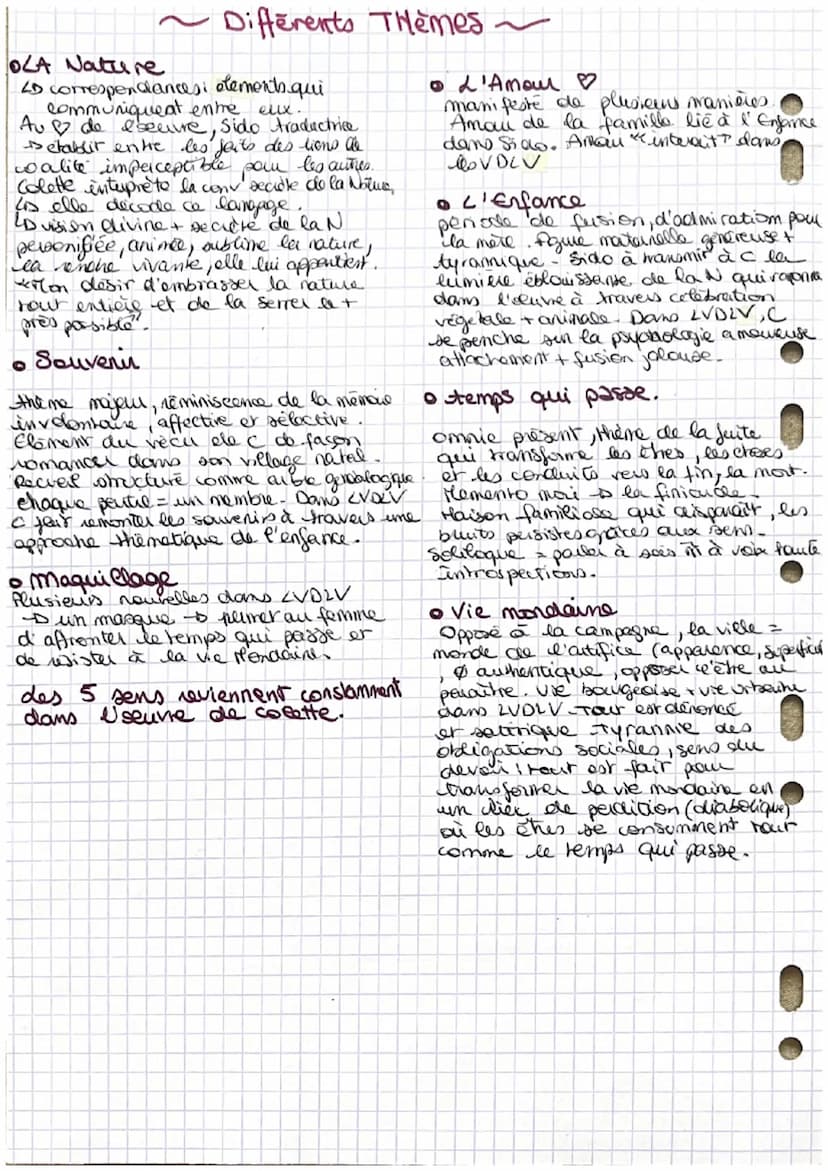 ~ Différents THèmes ~
• LA Nature
↳ correspondances: élements qui
communiquent entre eux.
Au ♡ de l'oeuvre, Sido traductrice
→ établir entre les faits des liens de
coalité imperceptible pour les autres.
Colette intuprète la conv' secrète de la Nature,
↳ elle décode ce langage.
↳ vision divine + sacrée de la N
personifiée, animée, sublime la nature,
la rendre vivante, elle lui appartient.
"Mon désir d'embrasser la nature
tout entière et de la serrer le +
près possible".
• Souvenir
thème majeur, réminiscence de la mémoire
involontaire, affective et sélective.
Élément du vécu de C de façon
romancer dans son village natal.
Recueil structuré comme arbre généalogique
chaque partie = un membre. Dans LVDLV
C fait remonter les souvenirs à travers une
approche thématique de l'enfance.
• Maquillage
Plusieurs nouvelles dans LVDLV
→ un masque → permet au femme
d'affronter le temps qui passe et
de résister à la vie Mondaine.
des 5 sens reviennent constamment
dans l'oeuvre de colette.
• L'Amour ♡
manifesté de plusieurs manières.
Amour de la famille lié à l'Enfance
dans Sido. Amour "interdit" dans
les VDLV
• L'Enfance
période de fusion, d'admiration pour
la mère. figure maternelle généreuse +
tyrannique - Sido à transmir à C la
lumière éblouissante de la N qui rayonne
dans l'oeuvre à travers célébration
végétale + animale. Dans LVDLV, C
se penche sur la psychologie amoureuse
attachement + fusion jalouse.
• temps qui passe.
omnie présent, thème de la fuite
qui transforme les êtres, les choses
et les conduits vers la fin, la mort.
Memento mori → la finitude.
Maison familiale qui disparaît, les
bruits persistes grâces aux sens.
Soliloque = parler à sois m̂ à voix haute
introspections.
• Vie mondaine
Opposé à la campagne, la ville =
monde de l'artifice (apparence, superficiel
, Ø authentique, opposer l'être au
paraître. Vie bourgeoise + vie urbaine
dans LVDLV. Tout est dénoncé
et satirique. Tyrannie des
obligations sociales, sens du
devoir, tout est fait pour
transformer la vie mondaine en
un lieu de perdition (diabolique)
où les êtres se consumment tout
comme le temps qui passe.